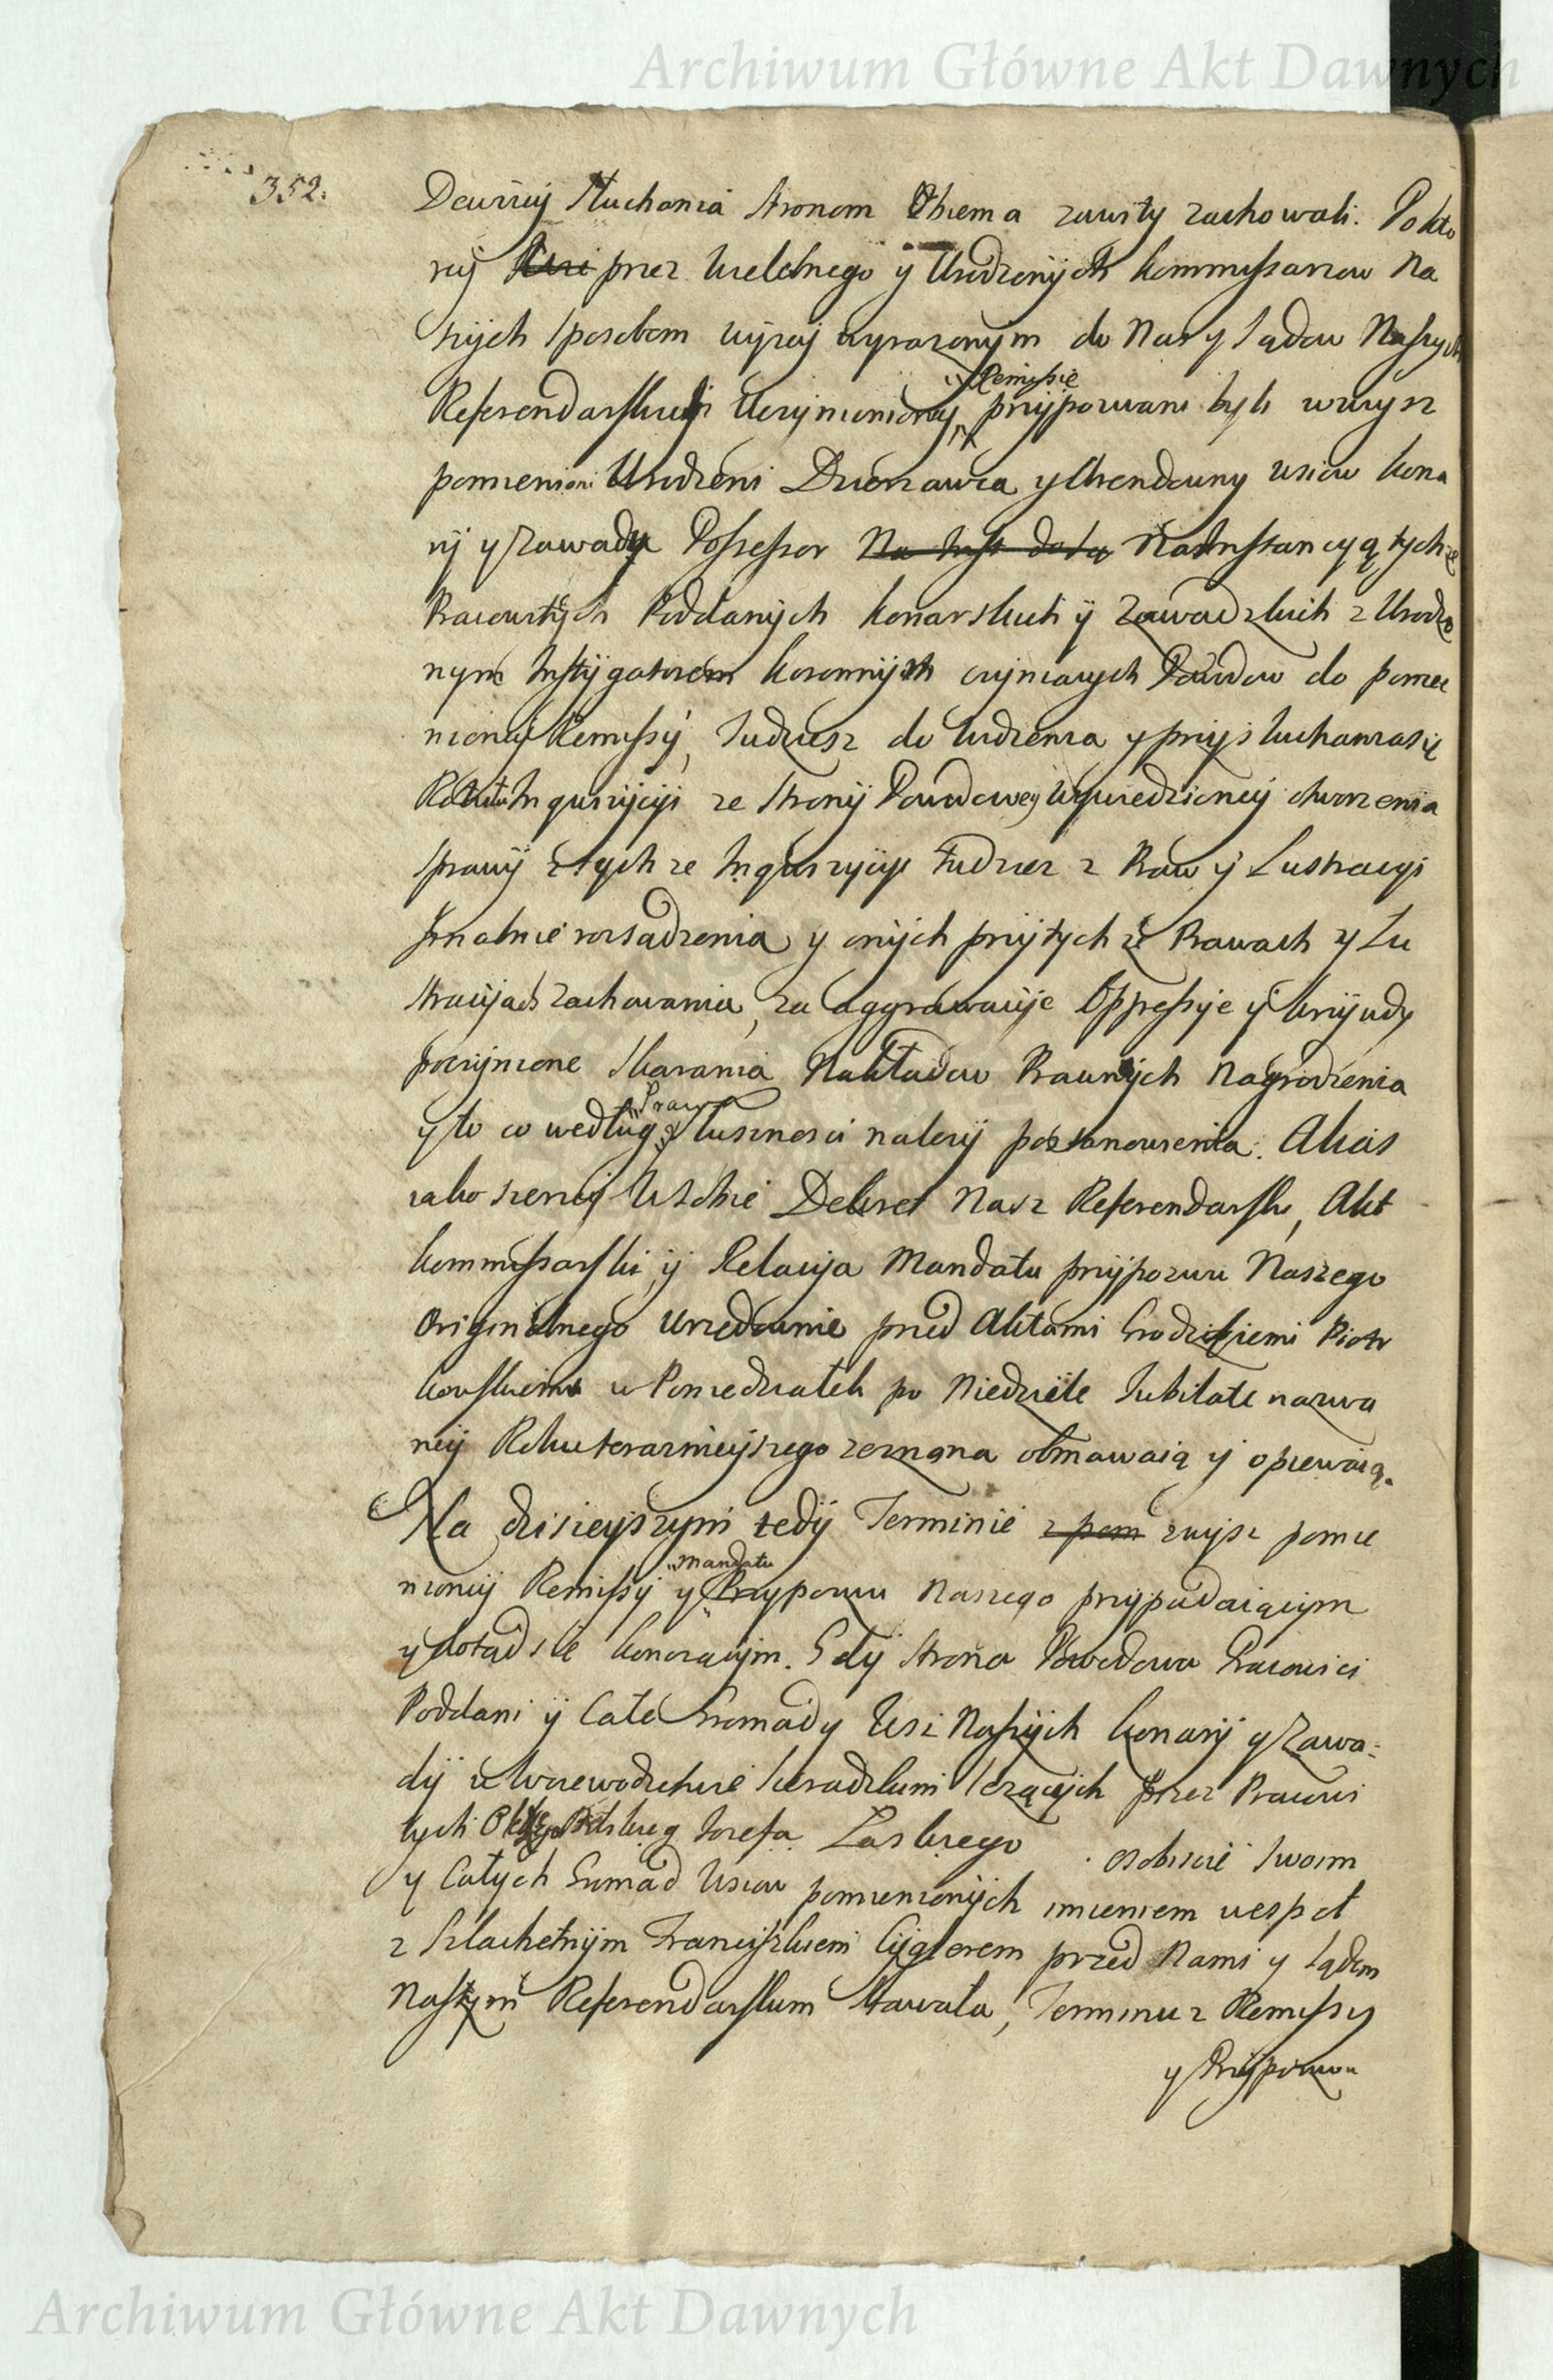 Archiwum Główne Akt Dawnych
352.
Słuchania stronom Obiema zawity zachowali. Po kto
rey przez Wielebnego y Urodzonych Kommissarzow Na
szych sposobem wyzey wyrazonym do Nas y Sądow Naszych
Remissie
Referendarskich Uczynioney przypozwani byli wwysz
pomienieni Urodzeni Dzierzawca y Arendowny wsiow Kona
ry y Zawady Possessor Na Inst data Na Instancyą tychze
Pracowitych Poddanych Konarskich y Zawadzkich z Urodzo
nym Instygatorem Koronnych czyniących Powodow do pomie
nioney Remissy, Tudziesz do widzenia y przysłuchania się
Rotulu Inquizycyi ze strony Powodowey wywiedzioney otworzenia
sprawy z tychze Inquizycyi tudziez z Praw y Lustracyi
finalnie rozsądzenia y onych przy tychze Prawach y Lu
stracyach zachowania, za aggrawacye Oppressye y krzywdy
poczynione skarania Nakładow Prawnych Nagrodzenia
Prawa
y to co według y słusznosci nalezy postanowienia. Alias
iako szerzey w sobie Dekret Nasz Referendarski, Akt
Kommissarski y Relacyja Mandatu przypozwu Naszego
Originalnego Urzędownie przed Aktami Grodzkiemi Piotr
kowskiemi w Poniedziałek po Niedziele Jubilate nazwa
ney Roku teraznieyszego zeznana obmawaią y opiewaią.
Na dzisieyszym tedy Terminie z pom zwysz pomie
Mandatu
nioney Remissy y Przypozwu Naszego przypadaiącym
y dotąd sie konczącym. Gdy strona Powodowa Pracowici
Poddani y Całe Gromady Wsi Naszych Konary y Zawa-
dy w Woiewodztwie Sieradzkim lezących przez Pracowi
tych Jozefa Laskiego osobiscie swoim
y Całych Gromad Wsiow pomienionych imieniem wespoł
z Szlachetnym Franciszkiem Cyglerem przed Nami y Sądem
Naszym Referendarskim stawała, Terminu z Remissy
y Przypozwu
Archiwum Główne Akt Dawnych